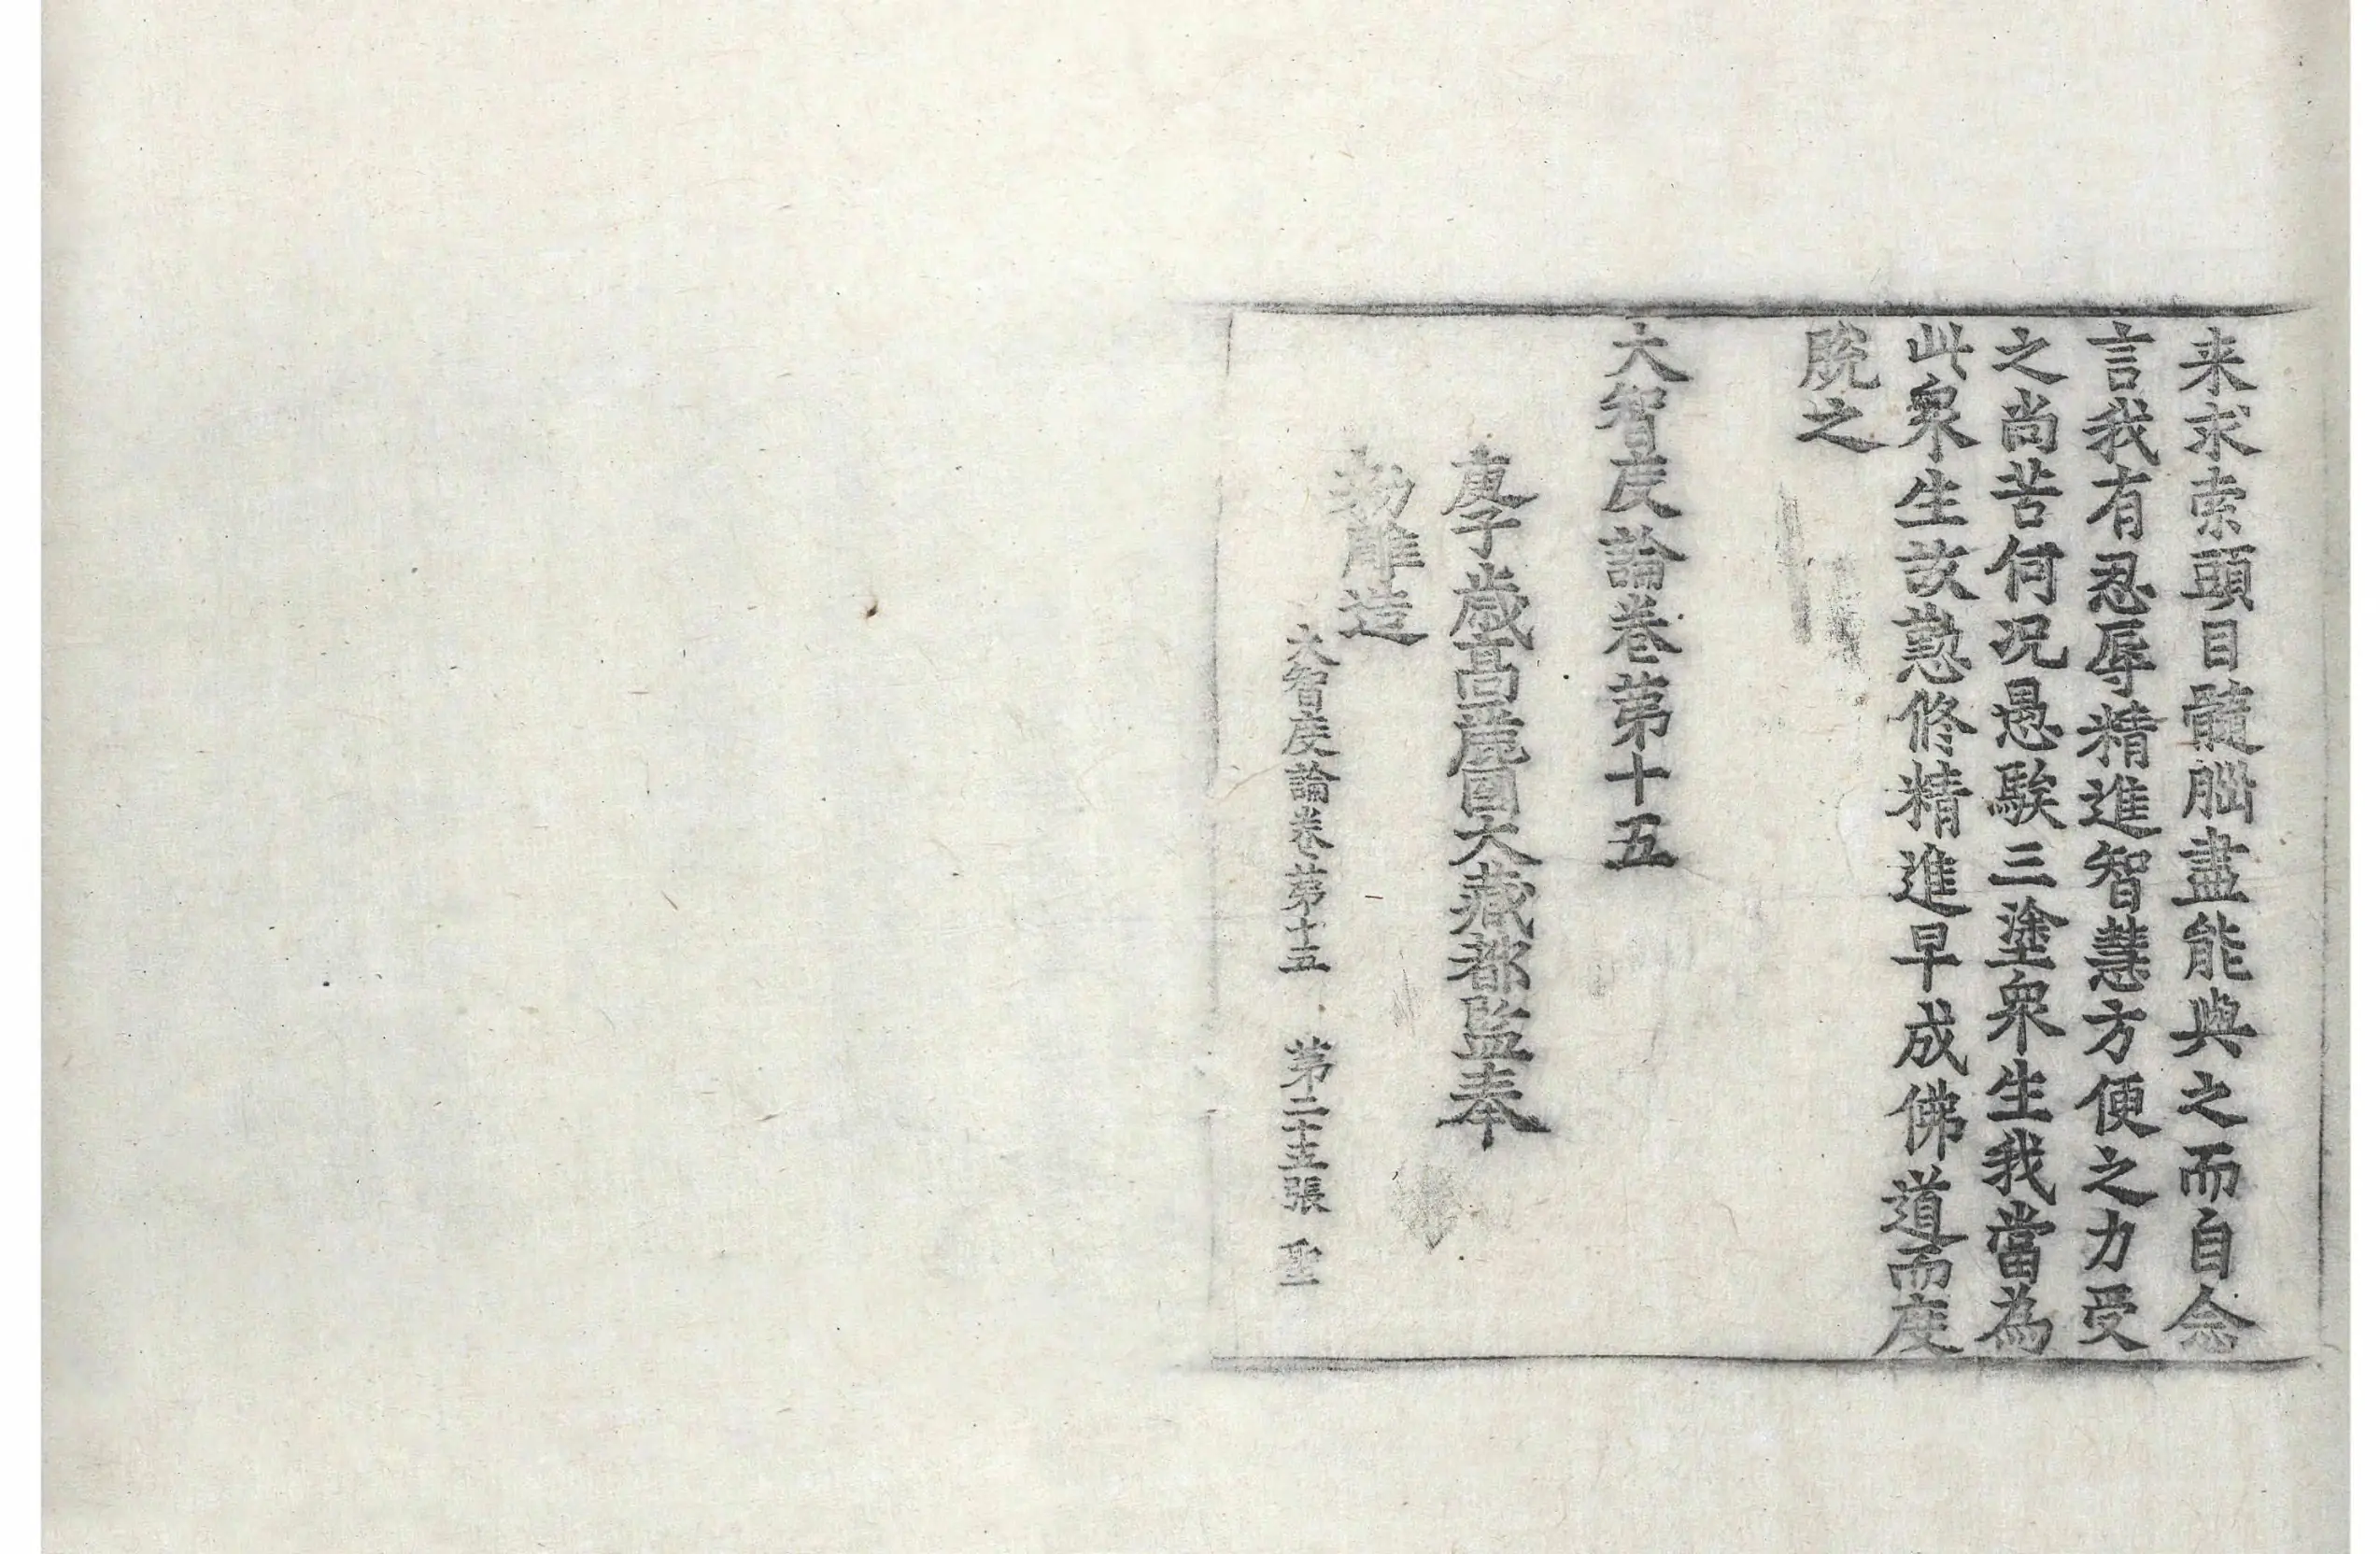 来求索頭目髓腦盡能與之而自念
言我有忍辱精進智慧方便之力受
之尚苦何况愚騃三塗衆生我當為
此衆生故懃修精進早成佛道而度
脫之
大智度論卷第十五
庚子歲高麗國大藏都監奉
勑雕造
大智度論卷第十五 第二十五張 聖